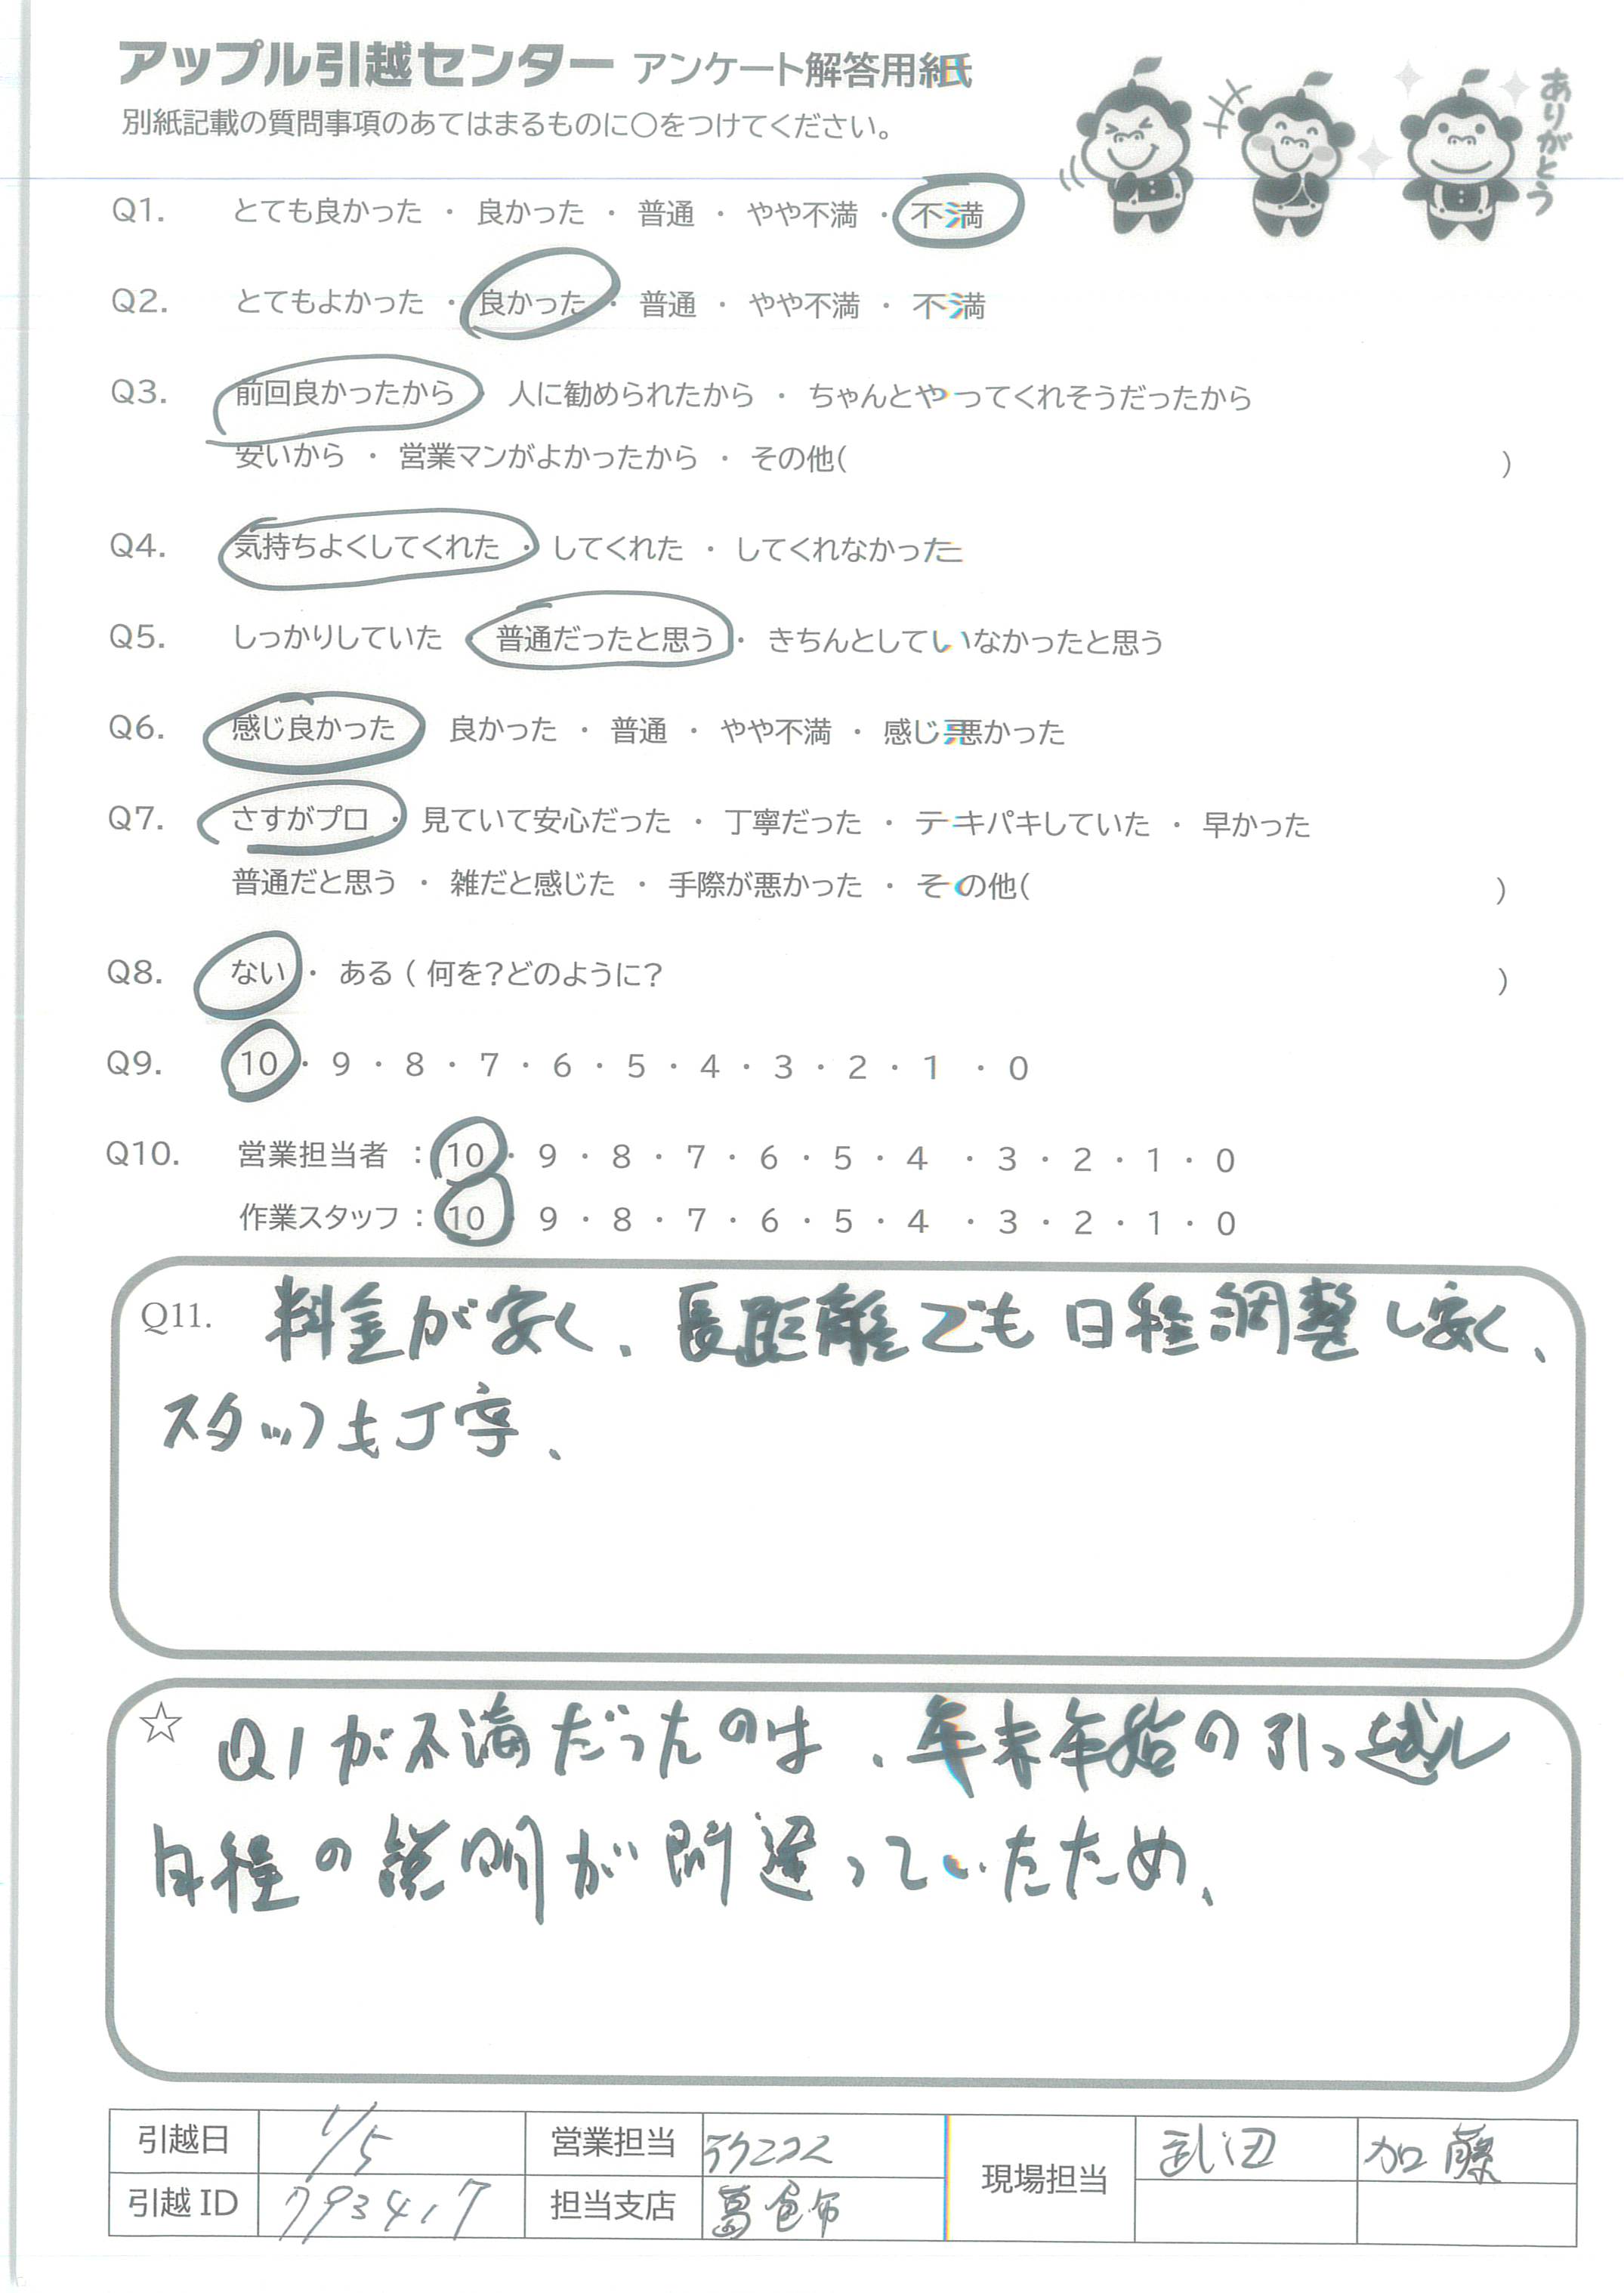 アップル引越センター アンケート解答用紙
別紙記載の質問事項のあてはまるものに〇をつけてください。
ありがとう
Q1. とても良かった ・ 良かった ・ 普通 ・ やや不満 ・ 不満
Q2. とてもよかった ・ 良かった ・ 普通 ・ やや不満 ・ 不満
Q3. 前回良かったから ・ 人に勧められたから ・ ちゃんとやってくれそうだったから
安いから ・ 営業マンがよかったから ・ その他( )
Q4. 気持ちよくしてくれた ・ してくれた ・ してくれなかった
Q5. しっかりしていた ・ 普通だったと思う ・ きちんとしていなかったと思う
Q6. 感じ良かった ・ 良かった ・ 普通 ・ やや不満 ・ 感じ悪かった
Q7. さすがプロ ・ 見ていて安心だった ・ 丁寧だった ・ テキパキしていた ・ 早かった
普通だと思う ・ 雑だと感じた ・ 手際が悪かった ・ その他( )
Q8. ない ・ ある ( 何を?どのように? )
Q9. 10 ・ 9 ・ 8 ・ 7 ・ 6 ・ 5 ・ 4 ・ 3 ・ 2 ・ 1 ・ 0
Q10. 営業担当者 : 10 ・ 9 ・ 8 ・ 7 ・ 6 ・ 5 ・ 4 ・ 3 ・ 2 ・ 1 ・ 0
作業スタッフ : 10 ・ 9 ・ 8 ・ 7 ・ 6 ・ 5 ・ 4 ・ 3 ・ 2 ・ 1 ・ 0
Q11. 料金が安く、長距離でも日程調整し安く、
スタッフも丁寧、
☆ Q1が不満だったのは、年末年始の引っ越し
日程の説明が間違っていたため、
引越日 1/5 営業担当 現場担当 武田 加藤
引越ID 793417 担当支店 葛飾